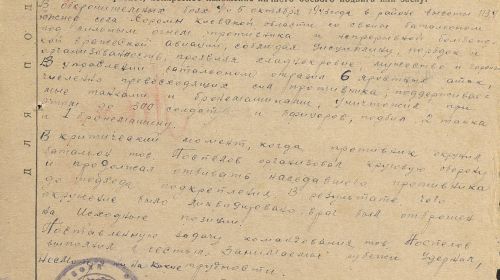 В оборонительных боях 4-5 октября 1943 года в районе высоты
южнее села Ходоры Киевской области со своим батальоном
под сильным огнем противника и непрерывной бомбежкой
вражеской авиации, соблюдая дисциплину, порядок и
организованность, проявляя хладнокровие, мужество и
В управлении батальоном, отразил 6 яростных атак,
численно превосходящих сил противника, поддерживае-
мые танками и бронемашинами, уничтожив при
этом до 300 солдат и офицеров, подбил 2 танка
и 1 бронемашину.
В критический момент, когда противник окружил
батальон тов. Поспелов организовал круговую оборону
и продолжал отбивать наседавшего противника
до подхода подкрепления. В результате чего
окружение было ликвидировано, враг был отброшен
на исходные позиции.
Поставленную задачу командования тов. Поспелов
выполнил с честью. Занимаемый рубеж удержал,
несмотря ни на какие трудности.
ДЛЯ ПОД